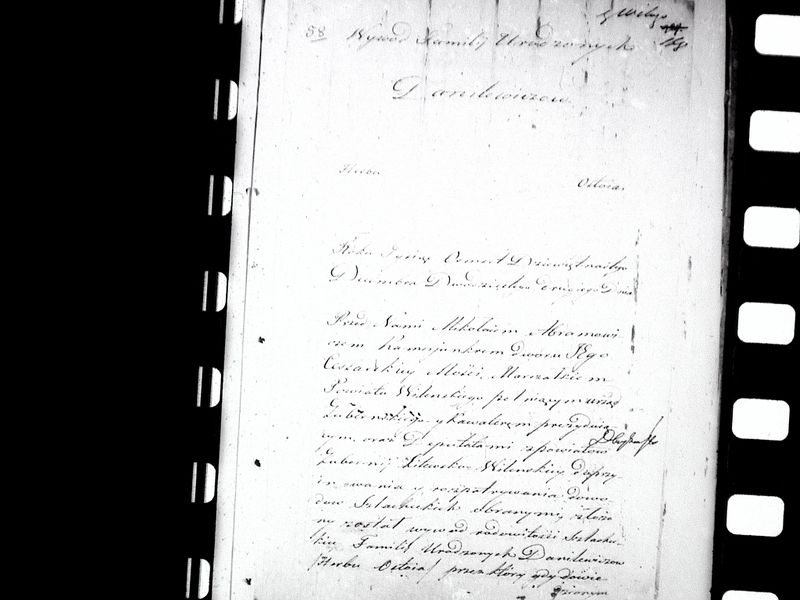 z Wilejs
58 Wywód Familij Urodzonych
Danilewiczow
Herbu Ostoia.
Roku Tysiąc Osmset Dziewiętnastego
Decembra Dwudziestego drugiego Dnia
Przed Nami Mikołaiem Abramowi-
czem Kamerjunkrem dworu JEgo
Cesarskiey Mości, Marszałkiem
Powiatu Wilenskiego pełniącym urząd
Gubernskiego y Kawalerem prezyduią-
cym, oraz Deputatami zpowiatow
Gubernij Litewsko Wilenskiey do przy-
imowania y rozpatrywania dowo-
dow Szlacheckich obranymi, złożo-
ny został wywód rodowitości Szlache-
kiey Familij Urodzonych Danilewiczow
Herbu Ostoia / przez który gdy dowie-
dzionym